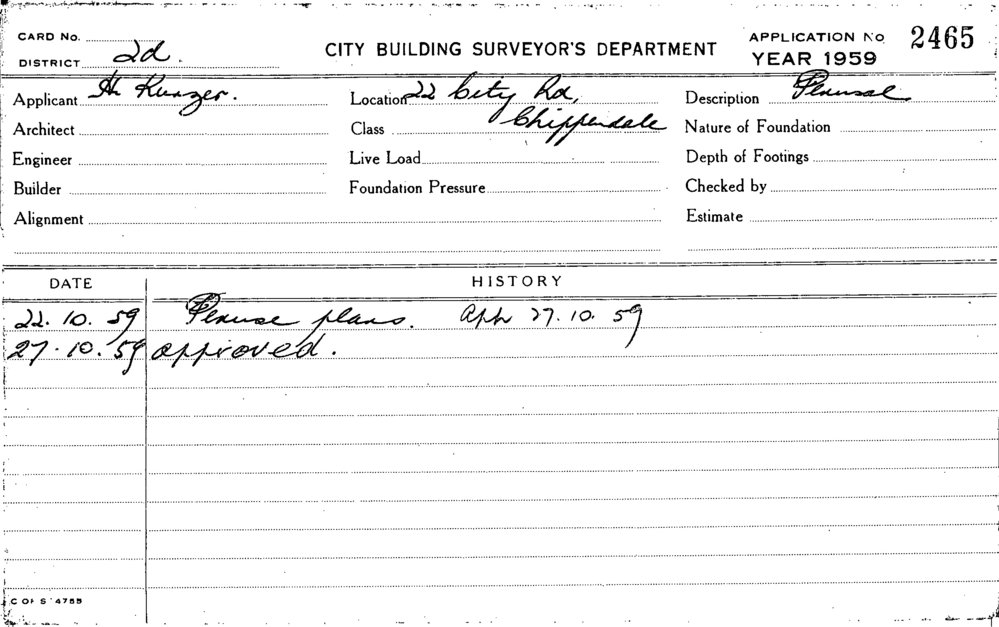 CARD No.
DISTRICT 2d.
CITY BUILDING SURVEYOR'S DEPARTMENT
APPLICATION No 2465
YEAR 1959
Applicant H. Kunzer. Location 22 City Rd, Description Perusal
Architect Class Chippendale Nature of Foundation
Engineer Live Load Depth of Footings
Builder Foundation Pressure Checked by
Alignment Estimate
DATE HISTORY
22. 10. 59 Peruse plans. 27. 10. 59
27. 10. 59 approved.
C OF S 4755